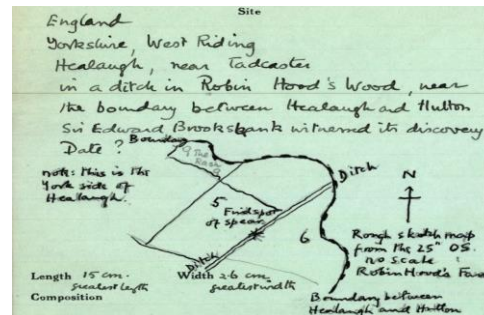 Site
England
Yorkshire, West Riding
Healaugh, near Tadcaster
in a ditch in Robin Hood's Wood, near
the boundary between Healaugh and Hutton
Sir Edward Brooksbank witnessed its discovery
Date?
Boundary
note: this is the
York side of
Healaugh.
9 The
9
Ditch
N
5 Findspot
of spear
6
Ditch
Rough sketch map
from the 25" OS.
no scale
Robin Hood's
Length 15 cm.
greatest length
Width 2.6 cm.
greatest width
Composition
Boundary between
Healaugh and Hutton